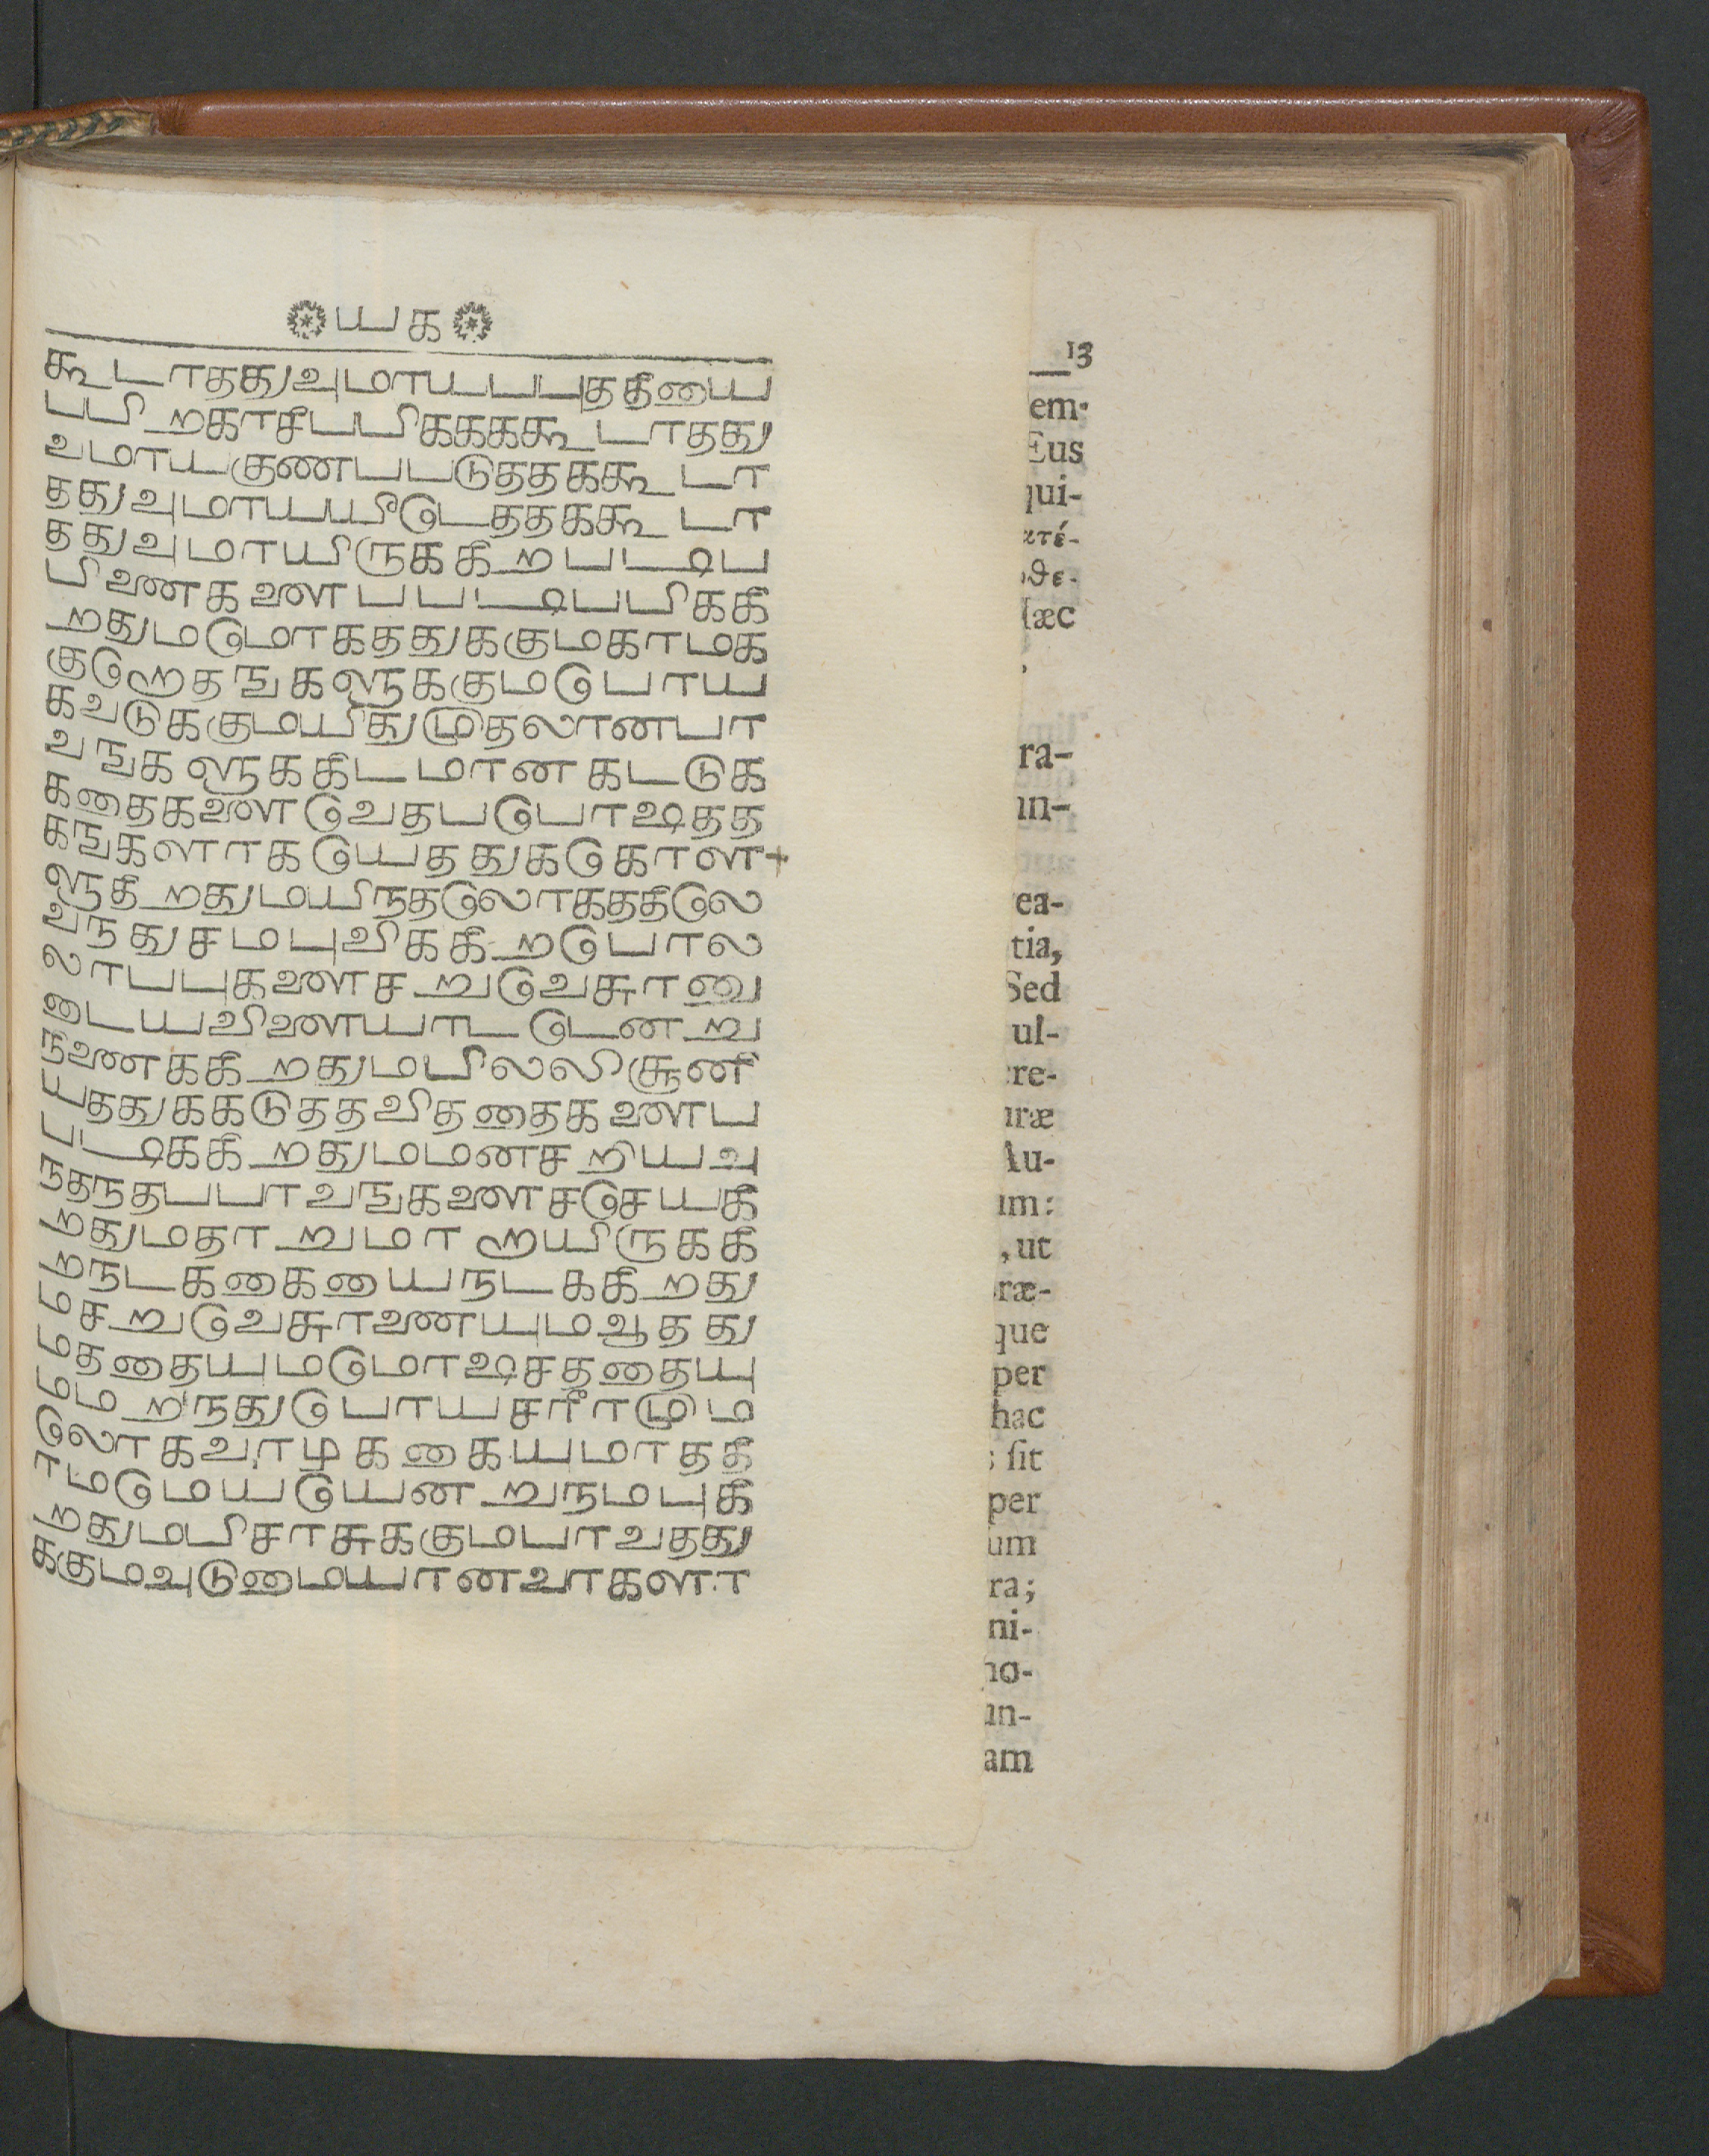 யக
கூடாததுவுமாயபபுததியை
பபிறகாசிபபிககககூடாதது
வுமாயகுணபபடுததககூடா
ததுவுமாயயீடேததககூடா
ததுவுமாயிருககிறபடிப
பிணகளைபபடிபபிககி
றதுமமோகததுககுமகாமக
குறோதஙகளுககுமபோய
கவடுககுமயிதுமுதலானபா
வஙகளுககிடமானகடடுக
கதைகளைவேதபபோஷத
கஙகளாகயேததுககொள
ளுகிறதுமயிநதலோகததிலே
வநதுசமபுவிககிறபோல
லாபபுகளைசறுவேசுரனு
டையவிளையாடடேனறு
நினைககிறதுமபிலலிசூனி
யததுககடுததவிததைகளைப
படிககிறதுமமனசறியவு
நதநதபபாவஙகளைசசெயகி
றதுமதாறுமாறாயிருககி
றநடககையைநடககிறது
சறுவேசுரனையுமஆதது
மததையுமமோஷசததையு
மறநதுபோயசரீரமும
லோகவாழககையுமாததி
ரமமேமெயயெனறுநமபுகி
றதுமபிசாசுககுமபாவதது
ககுமவுடுமையானவரகளா
13
em-
Eus
qui-
ατέ-
οθε-
Hæc
ra-
in-
rea-
tia,
Sed
ul-
cre-
uræ
Au-
um:
, ut
præ-
que
per
hac
; ſit
per
um
ra;
ni-
no-
un-
am